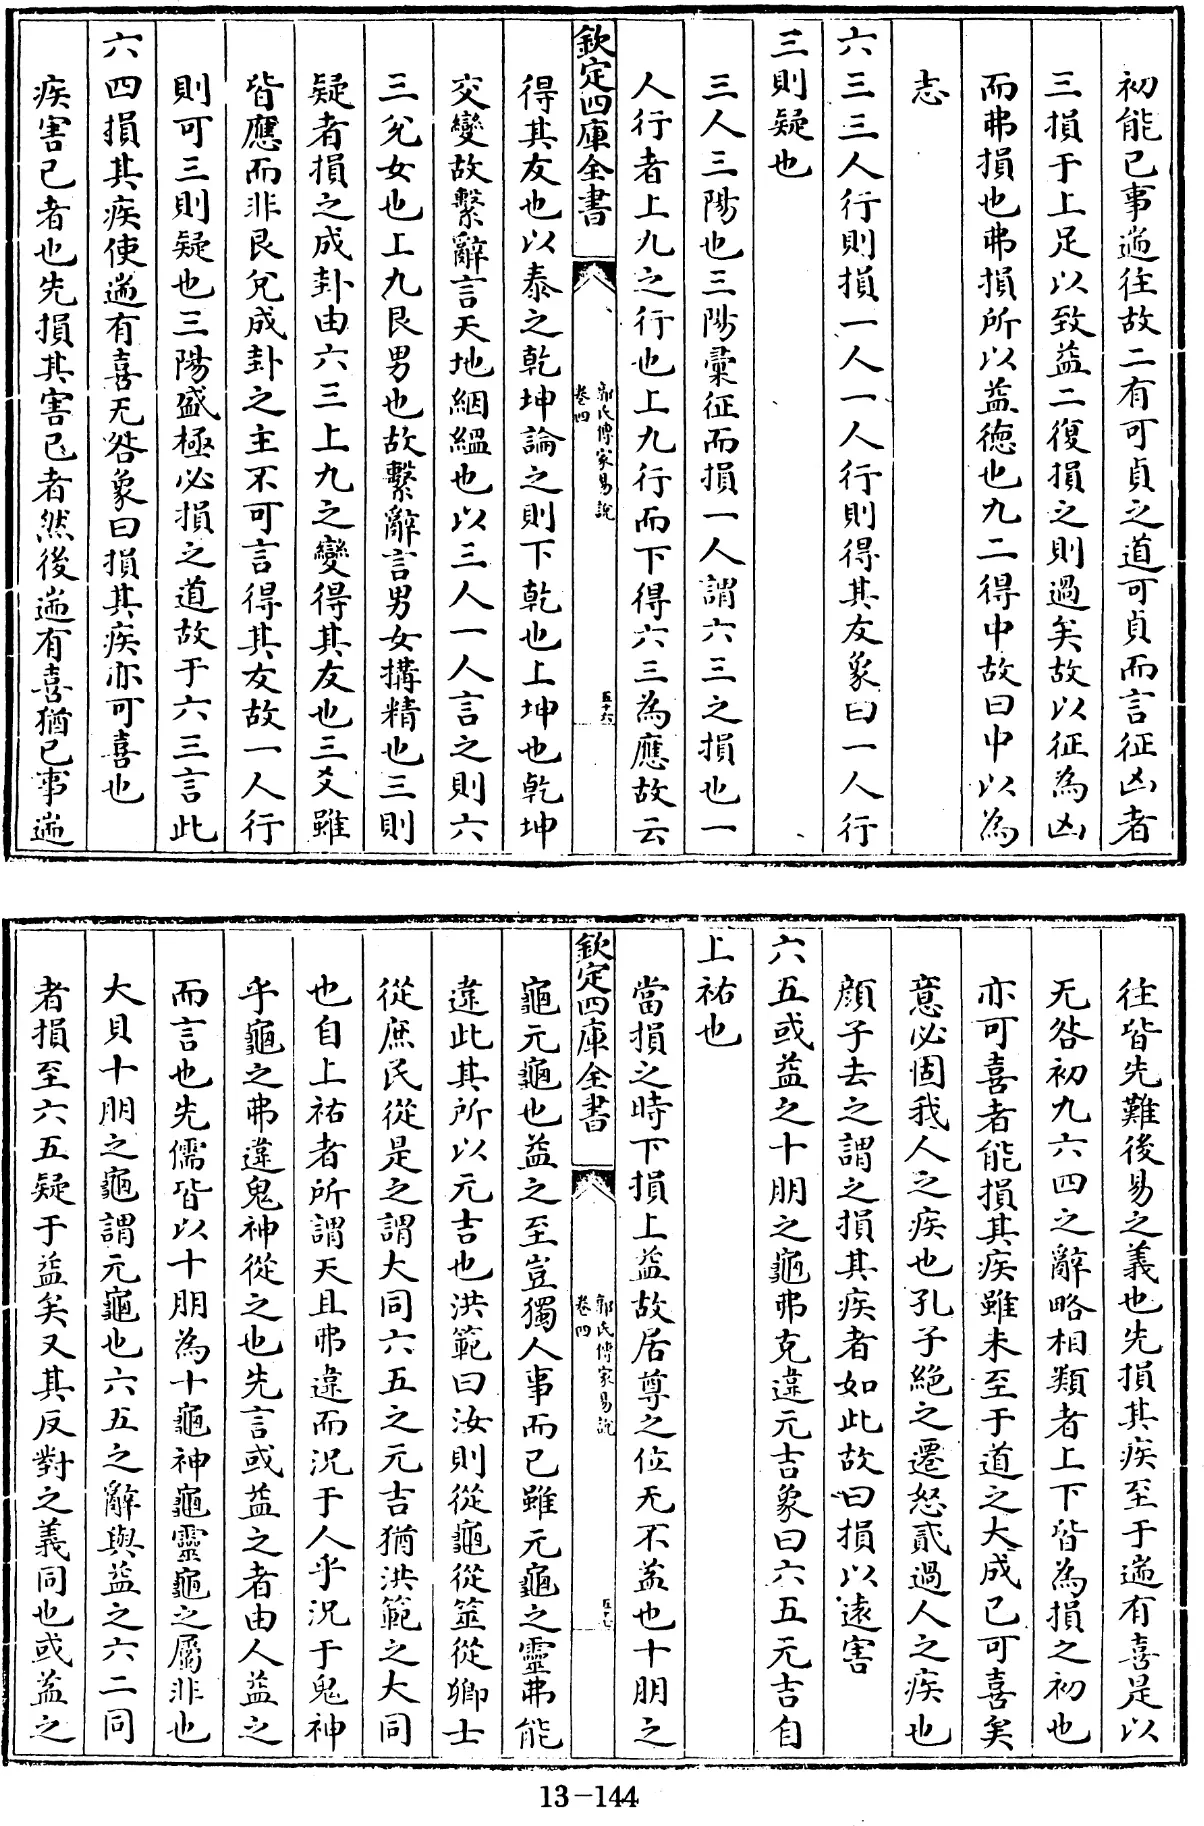 初能已事遄往故二有可貞之道可貞而言征凶者
三損于上足以致益二復損之則過矣故以征為凶
而弗損也弗損所以益德也九二得中故曰中以為
志
六三三人行則損一人一人行則得其友象曰一人行
三則疑也
三人三陽也三陽彙征而損一人謂六三之損也一
人行者上九之行也上九行而下得六三為應故云
欽定四庫全書
郭氏傳家易說
卷四
五十六
得其友也以泰之乾坤論之則下乾也上坤也乾坤
交變故繫辭言天地絪縕也以三人一人言之則六
三兌女也上九艮男也故繫辭言男女搆精也三則
疑者損之成卦由六三上九之變得其友也三爻雖
皆應而非艮兌成卦之主不可言得其友故一人行
則可三則疑也三陽盛極必損之道故于六三言此
六四損其疾使遄有喜无咎象曰損其疾亦可喜也
疾害己者也先損其害己者然後遄有喜猶已事遄
往皆先難後易之義也先損其疾至于遄有喜是以
无咎初九六四之辭略相類者上下皆為損之初也
亦可喜者能損其疾雖未至于道之大成已可喜矣
意必固我人之疾也孔子絶之遷怒貳過人之疾也
顔子去之謂之損其疾者如此故曰損以遠害
六五或益之十朋之龜弗克違元吉象曰六五元吉自
上祐也
當損之時下損上益故居尊之位无不益也十朋之
欽定四庫全書
郭氏傳家易說
卷四
五十七
龜元龜也益之至豈獨人事而已雖元龜之靈弗能
違此其所以元吉也洪範曰汝則從龜從筮從卿士
從庶民從是之謂大同六五之元吉猶洪範之大同
也自上祐者所謂天且弗違而況于人乎況于鬼神
乎龜之弗違鬼神從之也先言或益之者由人益之
而言也先儒皆以十朋為十龜神龜靈龜之屬非也
大貝十朋之龜謂元龜也六五之辭與益之六二同
者損至六五疑于益矣又其反對之義同也或益之
13-144